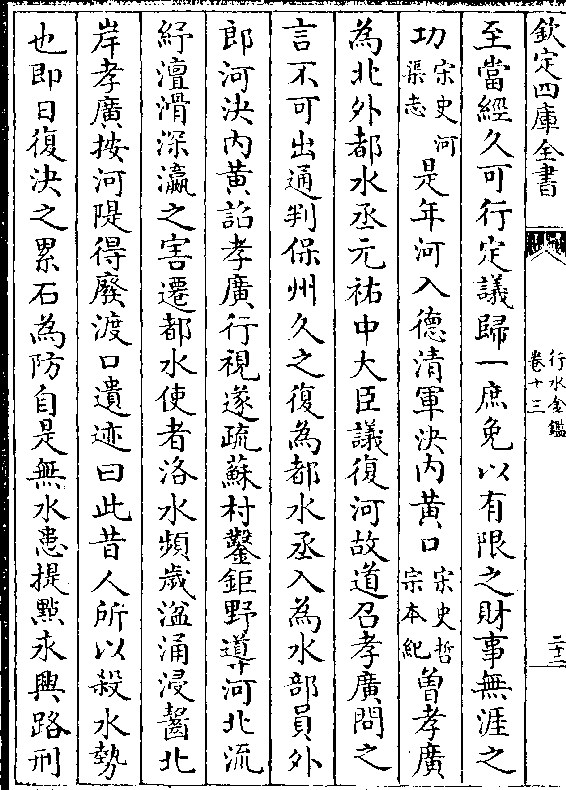 欽定四庫全書
行水金鑑
卷十三
二十二
至當經久可行定議歸一庶免以有限之財事無涯之
功宋史河渠志是年河入德清軍決内黄口宋史哲宗本紀曾孝廣
為北外都水丞元祐中大臣議復河故道召孝廣問之
言不可出通判保州久之復為都水丞入為水部員外
郎河決内黄詔孝廣行視遂疏蘇村鑿鉅野導河北流
紓澶滑深瀛之害遷都水使者洛水頻歲溢涌浸齧北
岸孝廣按河隄得廢渡口遺迹曰此昔人所以殺水勢
也即日復決之累石為防自是無水患提㸃永興路刑